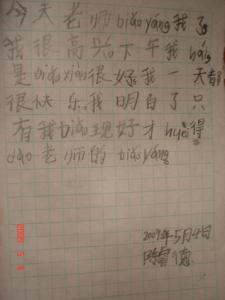 今天老师biǎo yáng我了
我很高兴下午我hái
是biǎo xiàn很好我一天都
很快乐。我明白了只
有我biǎo现好才得
dao老师的biǎo yáng
2009年5月4日
德